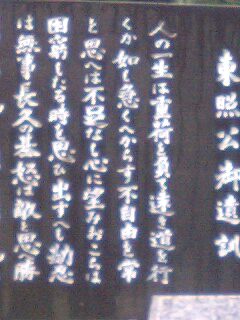 東照公御遺訓
人の一生は重荷を負て遠き道を行
くが如し急くへからす不自由を常
と思へは不足なし心に望みおこらは
困窮したる時を思ひ出すへし勘忍
は無事長久の基怒は敵と思へ勝